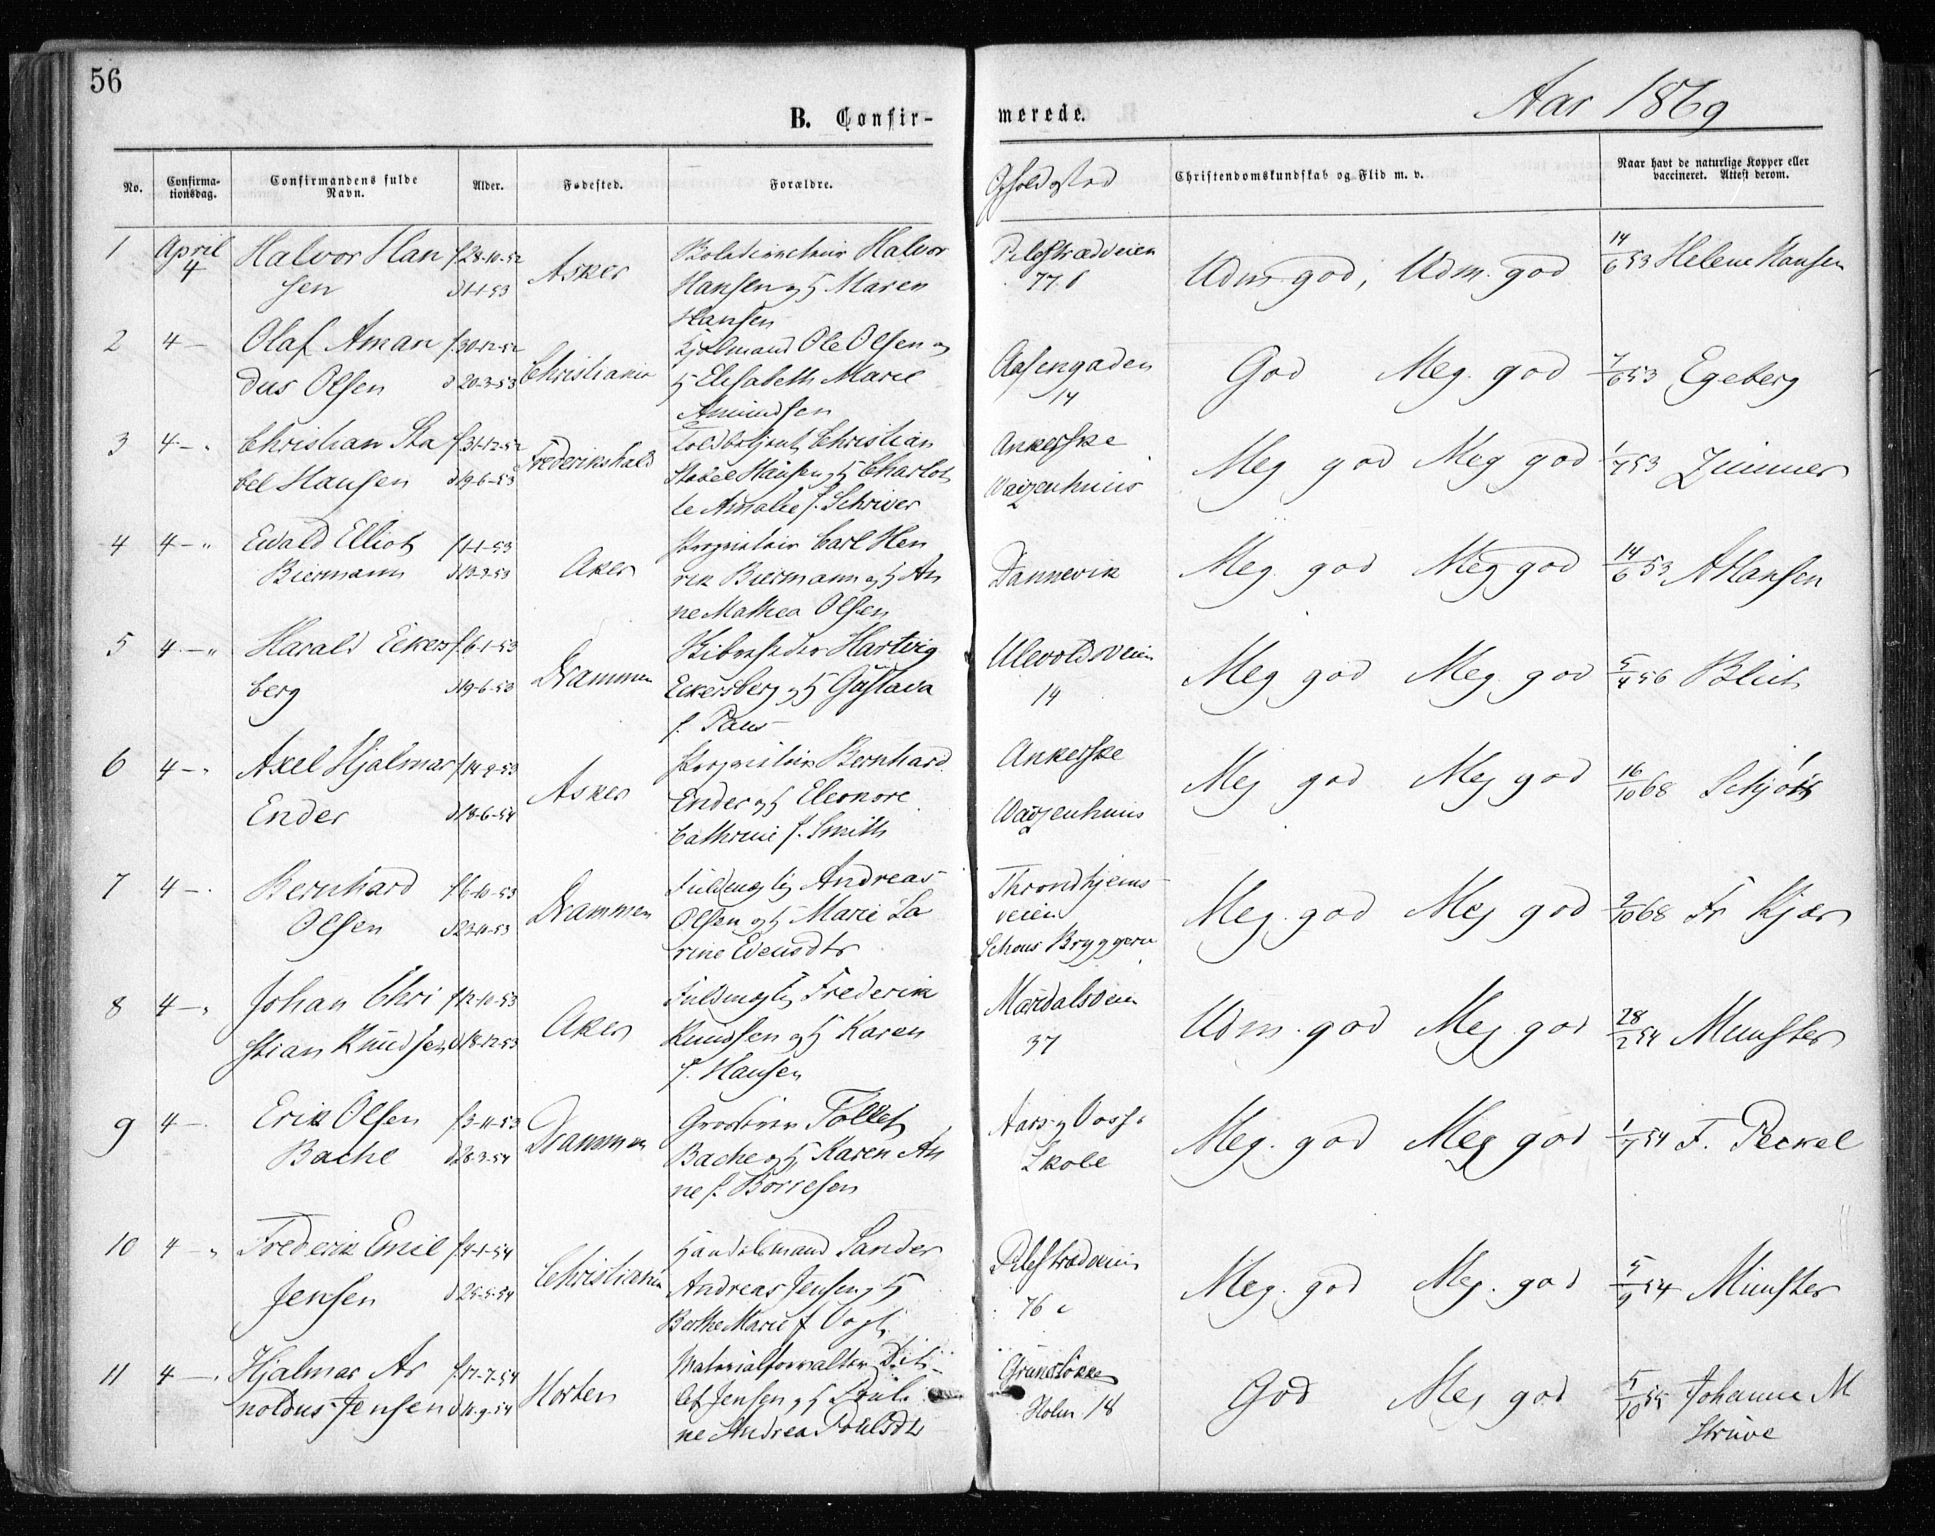 56
B. Confir-
merede.
Aar 1869
No.
Confirma-
tionsdag.
Confirmandens fulde
Navn.
Alder.
Fødested.
Forældre.
Opholdsted
Christendomskundskab og Flid m. v.
Naar havt de naturlige Kopper eller
vaccineret. Attest derom.
1 April Halvor Han f 28-10-52 Halvor Pilestrædveien 14
4 sen d 1-1-53 Asker Hansen og H Maren 77 b Udm. god, Udm. god 6 53 Helene Hansen
Hansen
2 4 — Olaf Aman f 30-12-52 Ole Olsen og
dus Olsen d 20-3-53 Christiania H Elisabeth Marie Aasengaden God Meg. god 7/6 53 Egeberg
Amundsen 14
3 4 — " Christian Sta f 31-12-52 Christian Ankerske
bel Hansen d 19-6-53 Frederikshald Stabel Hansen og H Charlot Waizenhuus Meg god Meg god 1/7 53 Zimmer
te Amalie f. Schriver
4 4 — " Ewald Elliot f 1-1-53 Carl Hen
Biermann d 13-3-53 Aker rik Biermann og H An Dannevik Meg. god Meg god 14/6 53 A Hansen
ne Mathea Olsen
5 4 — " Harald Eckers f 6-1-53 Hartvig Ulevoldsveien
berg d 19-6-53 Drammen Eckersberg og H Gustava 14 Meg god Meg. god 5/4 56 Blich
f. Paus
6 4 — " Axel Hjalmar f 14-9-53 Bernhard Ankerske
Ender d 18-6-54 Asker Ender og H Eleonore Waizenhuus Meg god Meg god 16/10 68 Schjøtt
Cathrine f. Smith
7 4 — " Bernhard f 6-10-53 Fuldmægtig Andreas Throndhjems-
Olsen d 22-11-53 Drammen Olsen og H Marie La veien Meg. god Meg god 9/10 68 Fr Kjær
rine Evensdtr Schous Bryggeri
8 4 — " Johan Chri f 12-10-53 Fuldmægtig Frederik Maridalsveien
stian Knudsen d 18-12-53 Aker Knudsen og H Karen 37 Udm. god Meg. god 28/2 54 Munster
f. Hansen
9 4 — Erik Olsen f 3-11-53 Grosserer Tollef Aars og Voss's
Bache d 28-3-54 Drammen Bache og H Karen An Skole Meg. god Meg god 1/7 54 F. Peckel
ne f. Borresen
10 4 — " Frederik Emil f 4-1-54 Handelsmand Sander Pilestrædveien
Jensen d 25-5-54 Christiania Andreas Jensen og H 76 c Meg. god Meg. god 5/9 54 Münster
Berthe Marie f Vogt
11 4 — Hjalmar Ar f 17-7-54 Materialforvalter Dit- Grünerløkken
noldus Jensen d 11-9-54 Horten lef Jensen og H Pauli Holm 18 God Meg god 5/10 55 Johanne M
ne Andrea Poulsdtr Strüve